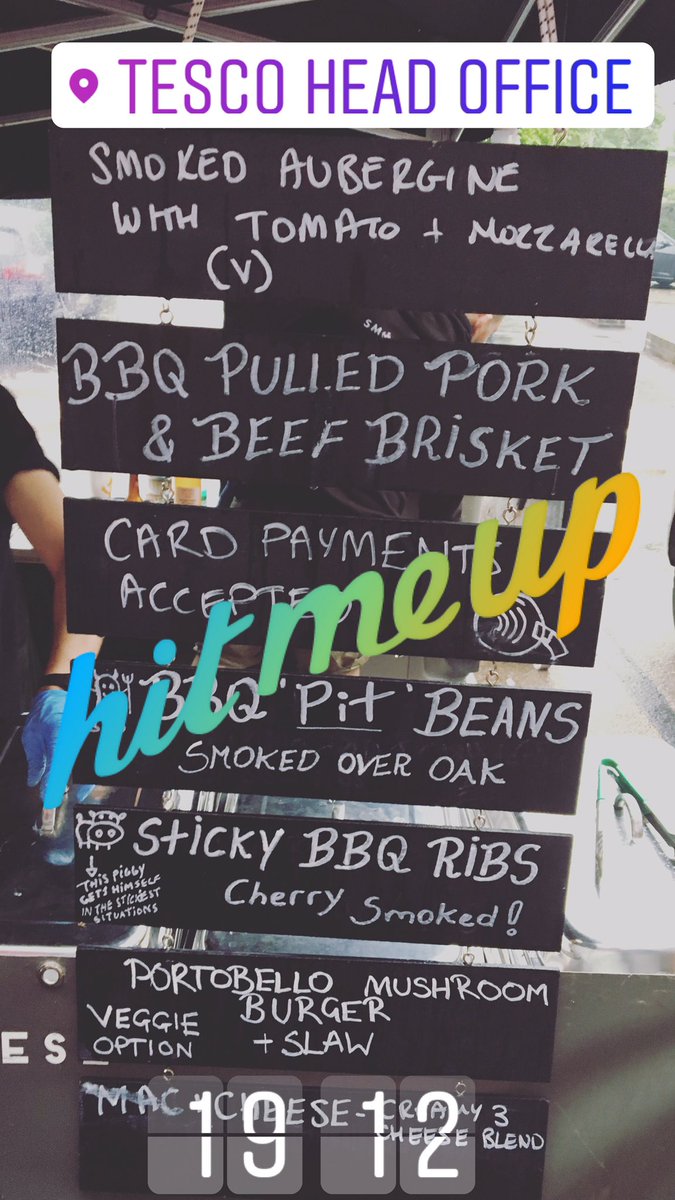 TESCO HEAD OFFICE
SMOKED AUBERGINE
WITH TOMATO + MOZZARELLA
(V)
BBQ PULLED PORK
& BEEF BRISKET
CARD PAYMENTS
ACCEPTED
hit me up
BBQ 'Pit' BEANS
SMOKED OVER OAK
STICKY BBQ RIBS
THIS PIGGY
GETS HIMSELF
IN THE STICKIEST
SITUATIONS
Cherry Smoked!
PORTOBELLO MUSHROOM
BURGER
+ SLAW
VEGGIE
OPTION
MAC + CHEESE - CREAMY 3
CHEESE BLEND
19 12